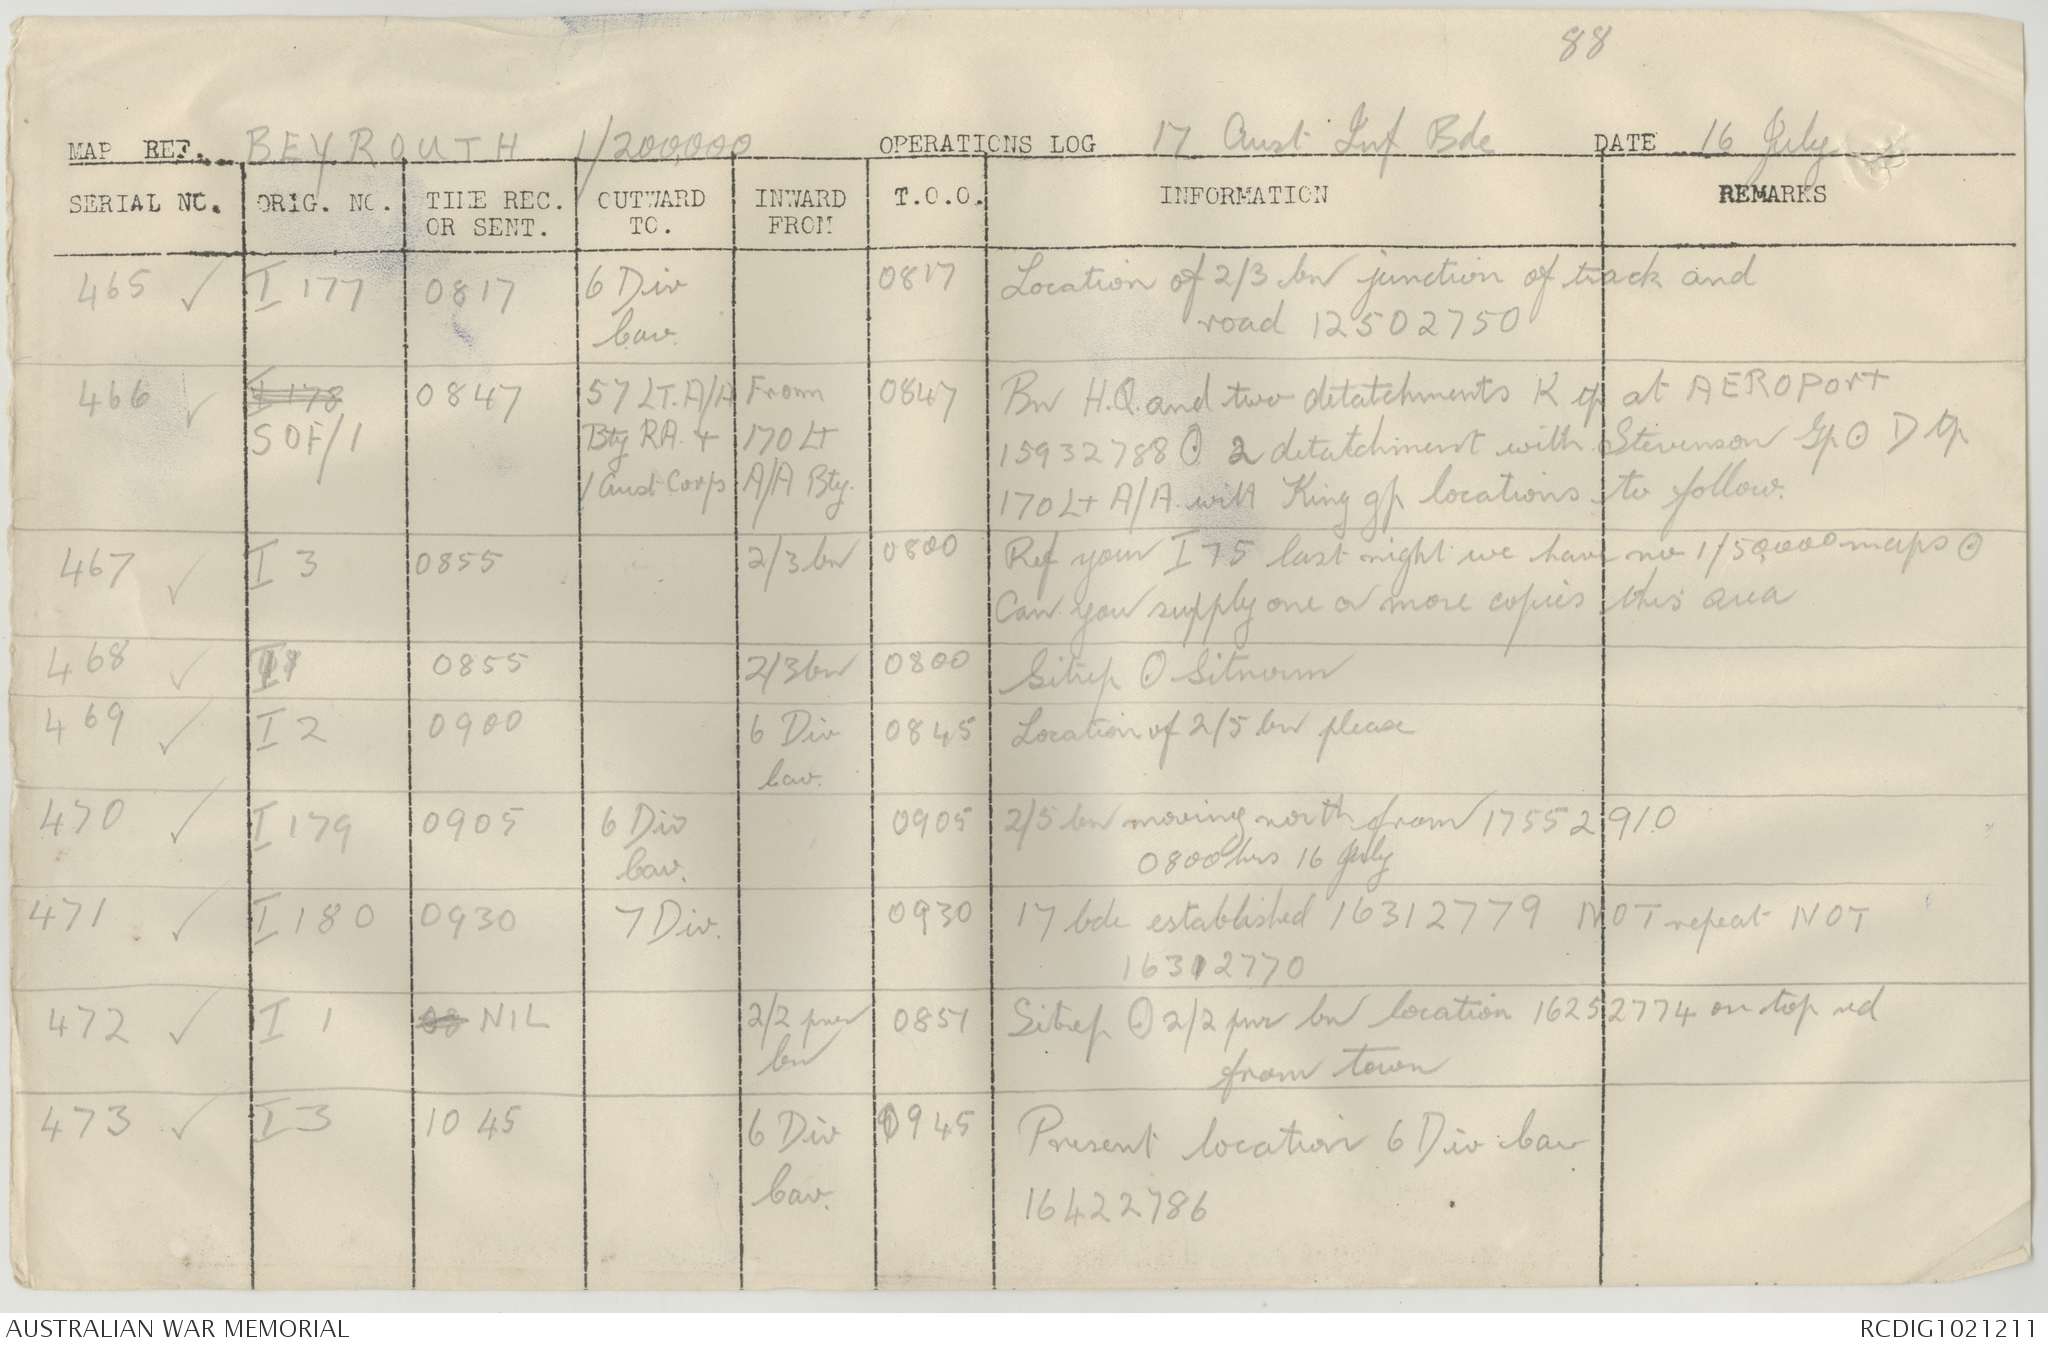 88
MAP REF. BEYROUTH 1/200,000 OPERATIONS LOG 17 Aust Inf Bde DATE 16 July
SERIAL NO. ORIG. NO. TIME REC. OR SENT. OUTWARD TO. INWARD FROM T.O.O. INFORMATION REMARKS
465 ✓ I 177 0817 6 Div 0817 Location of 2/3 bn junction of track and
Cav. road 12502750
466 ✓ I 178 0847 57 LT. A/A From 0847 Bn H.Q. and two detatchments K tp at AEROPORT
SOF/1 Bty RA. + 170 Lt 15932788 ⊙ 2 detatchment with Stevenson Gp ⊙ D tp
1 Aust Corps A/A Bty. 170 Lt A/A. with King gp locations to follow.
467 ✓ I 3 0855 2/3 bn 0800 Ref your I 75 last night we have no 1/50,000 maps ⊙
Can you supply one or more copies this area
468 ✓ 0855 2/3 bn 0800 Sitrep ⊙ Sitnorm
469 ✓ I 2 0900 6 Div 0845 Location of 2/5 bn please
Cav.
470 ✓ I 179 0905 6 Div 0905 2/5 bn moving north from 17552910
Cav. 0800 hrs 16 July
471 ✓ I 180 0930 7 Div. 0930 17 bde established 16312779 NOT repeat NOT
16312770
472 ✓ I 1 08 NIL 2/2 pnr 0851 Sitrep ⊙ 2/2 pnr bn location 16252774 on top rd
bn from town
473 ✓ I 3 1045 6 Div 0945 Present location 6 Div Cav
Cav. 16422786
AUSTRALIAN WAR MEMORIAL RCDIG1021211